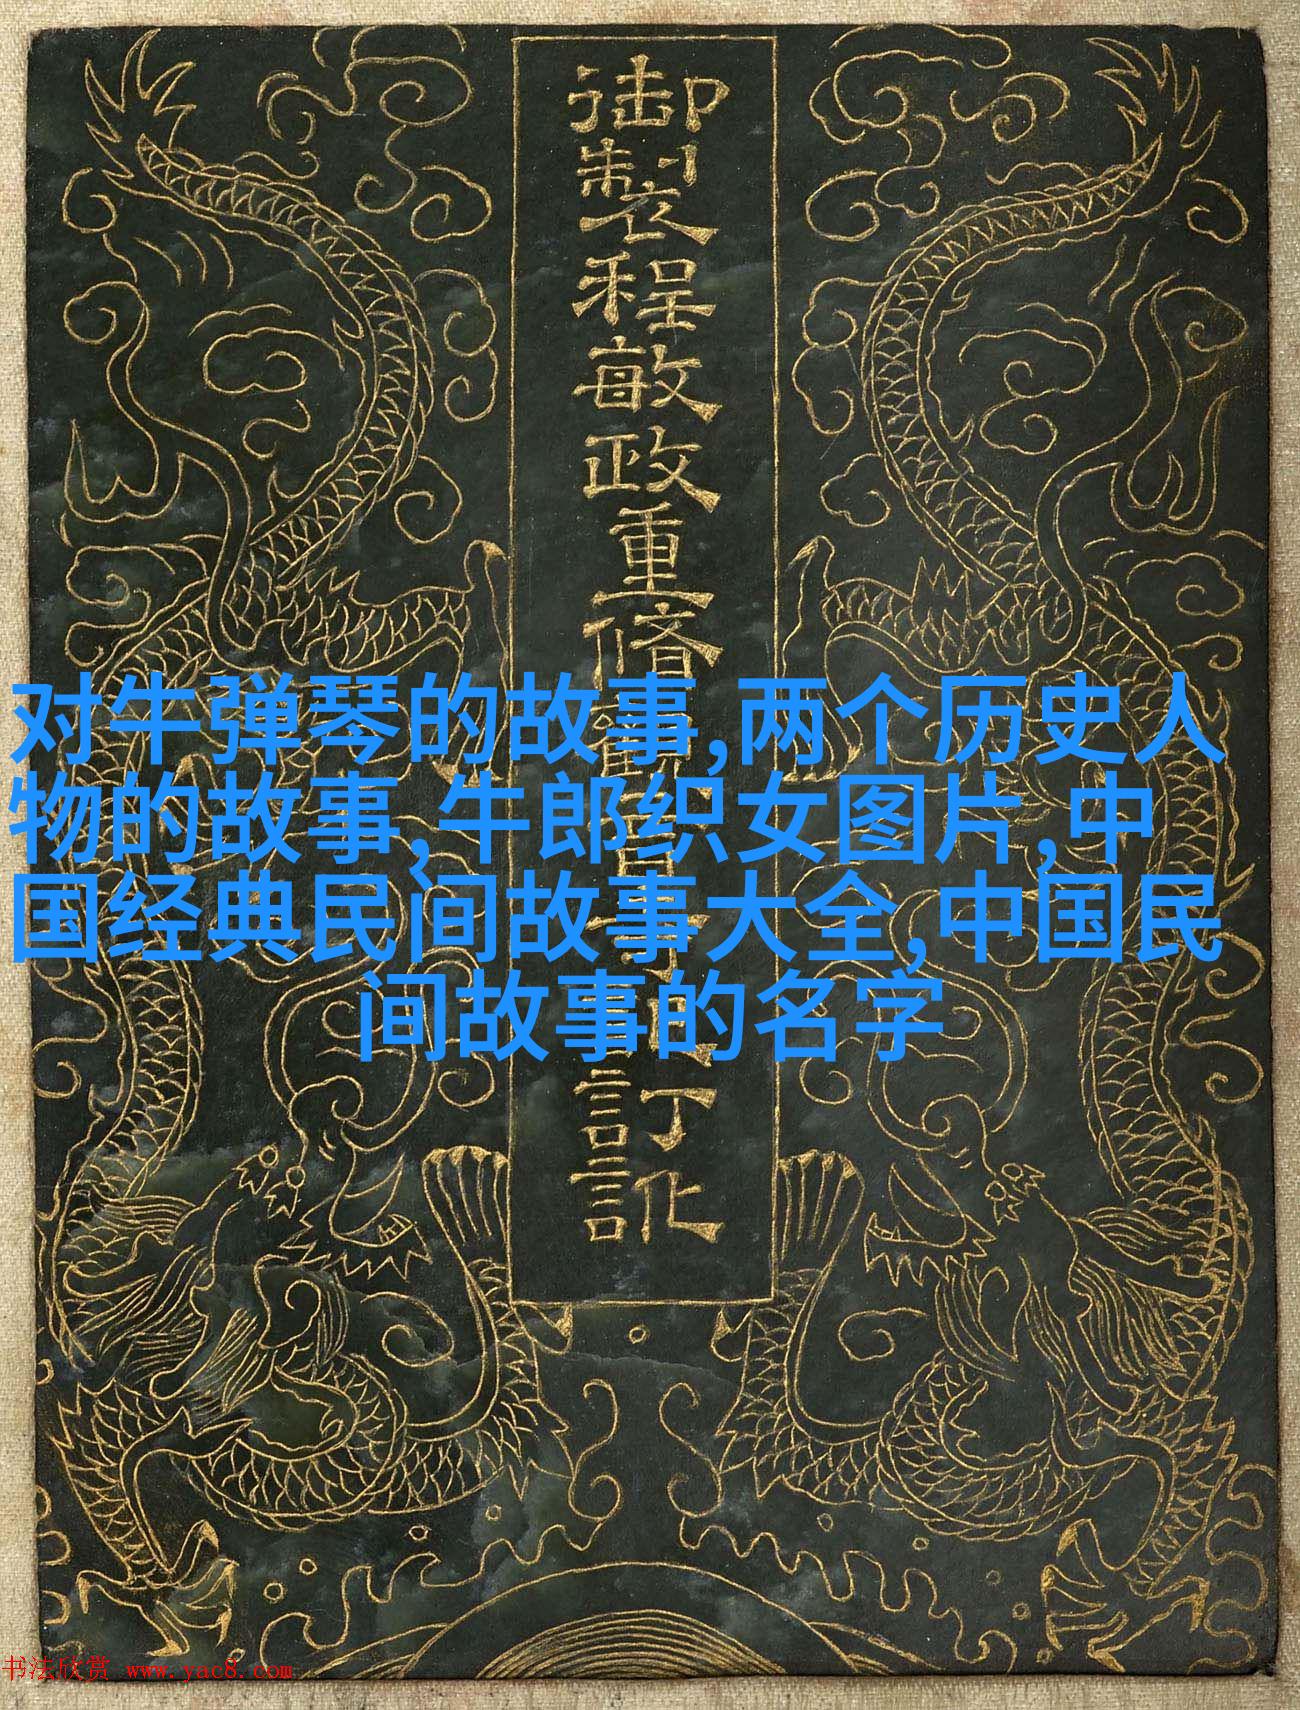 御製程敏政重脩訂訛
对牛弹琴的故事,两个历史人
物的故事,牛郎织女图片,中
国经典民间故事大全,中国民
间故事的名字
书法欣赏 www.yac8.com